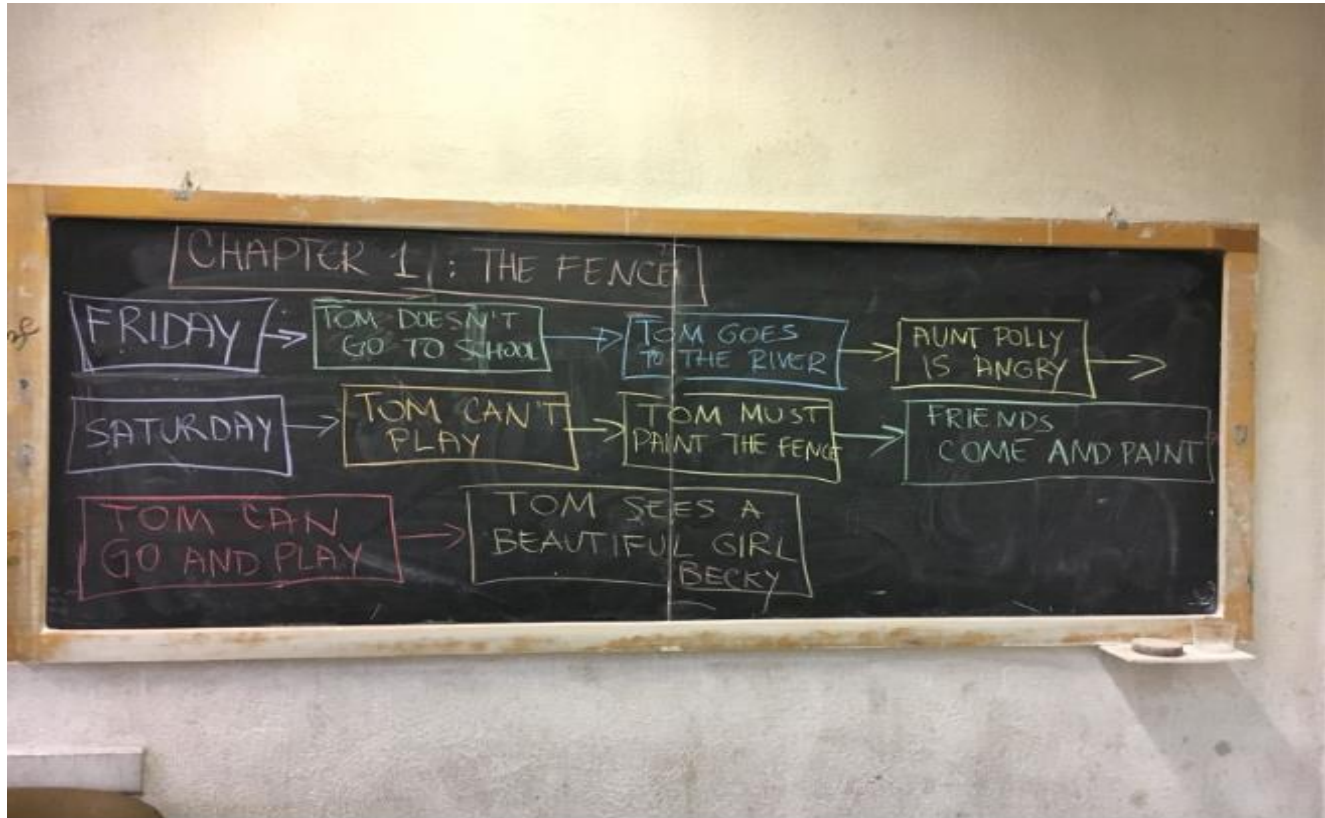 CHAPTER 1 : THE FENCE
FRIDAY
TOM DOESN'T
GO TO SCHOOL
TOM GOES
TO THE RIVER
AUNT POLLY
IS ANGRY
SATURDAY
TOM CAN'T
PLAY
TOM MUST
PAINT THE FENCE
FRIENDS
COME AND PAINT
TOM CAN
GO AND PLAY
TOM SEES A
BEAUTIFUL GIRL
BECKY